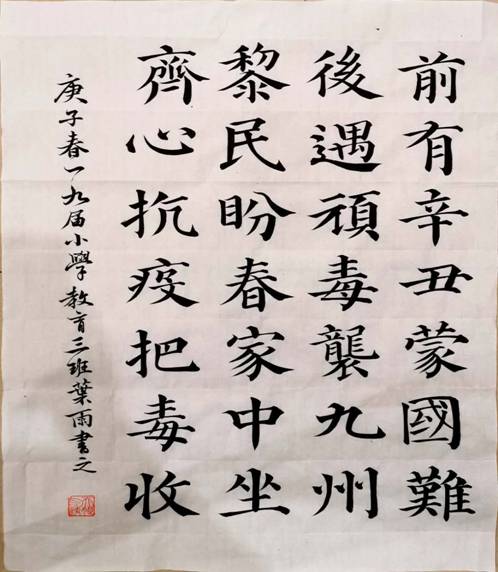 前有辛丑蒙國難
後遇頑毒襲九州
黎民盼春家中坐
齊心抗疫把毒收
庚子春一九届小學教育三班葉雨書之